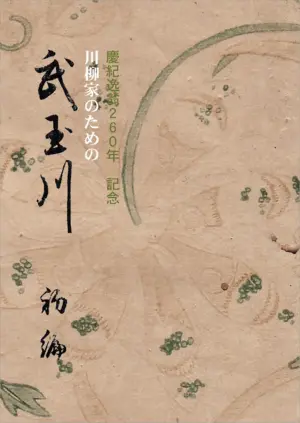 慶紀逸没260年 記念
川柳家のための
武玉川
初編